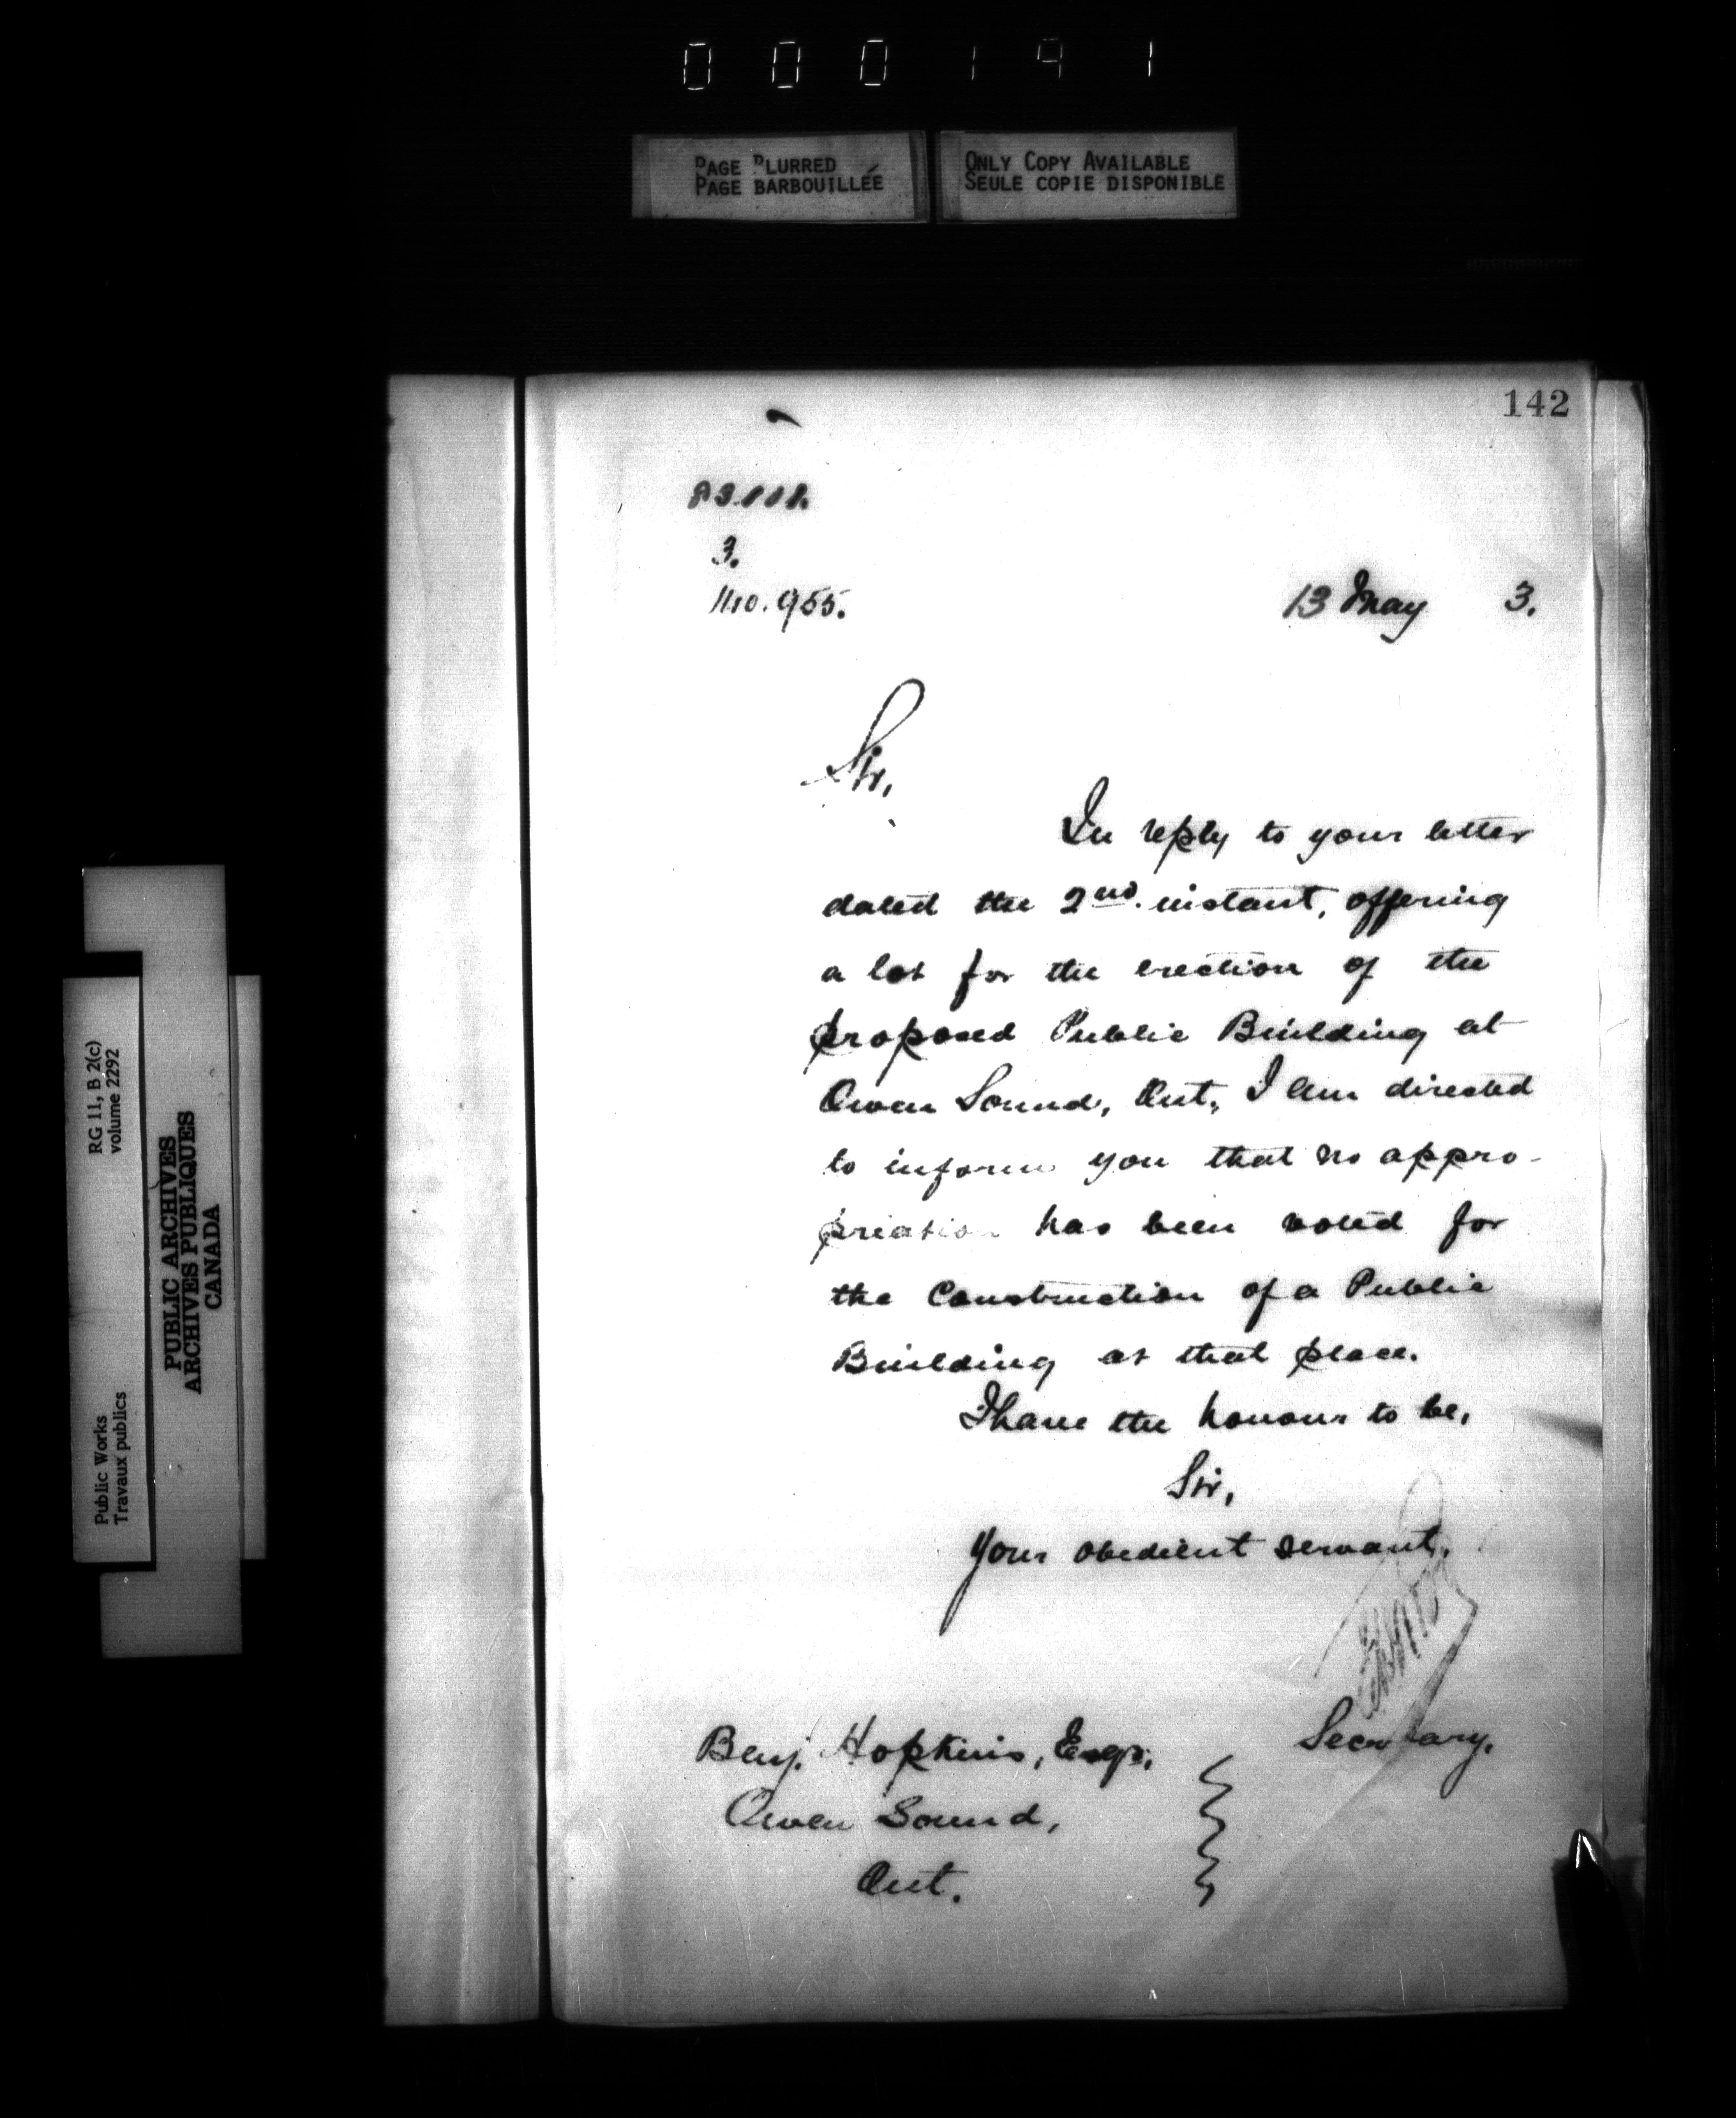 000191
PAGE BLURRED
PAGE BARBOUILLÉE
ONLY COPY AVAILABLE
SEULE COPIE DISPONIBLE
142
3.
110.955.
13 May 3.
Sir,
In reply to your letter
dated the 2nd. instant, offering
a lot for the erection of the
proposed Public Building at
Owen Sound, Ont., I am directed
to inform you that no appro-
priation has been voted for
the Construction of a Public
Building at that place.
I have the honour to be,
Sir,
Your obedient servant,
Secretary.
Benj. Hopkins, Esqr.
Owen Sound,
Ont.
RG 11, B 2(c)
volume 2292
Public Works
Travaux publics
PUBLIC ARCHIVES
ARCHIVES PUBLIQUES
CANADA